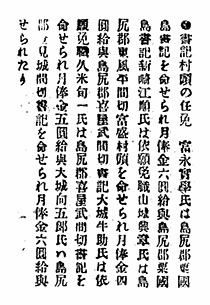 ●書記村頭の任免　富永實學氏は島尻郡粟國
島書記を命せられ月俸金六圓給與島尻郡粟國
島書記新崎江順氏は依願免職山城興章氏は島
尻郡東風平間切富盛村頭を命せられ月俸金四
圓給與島尻郡喜屋武間切書記大城牛助氏は依
願免職久米旬一氏は島尻郡喜屋武間切書記を
命せられ月俸金五圓給與大城向五郎氏ハ島尻
郡玉城間切書記を命せられ月俸金六圓給與
せられたり